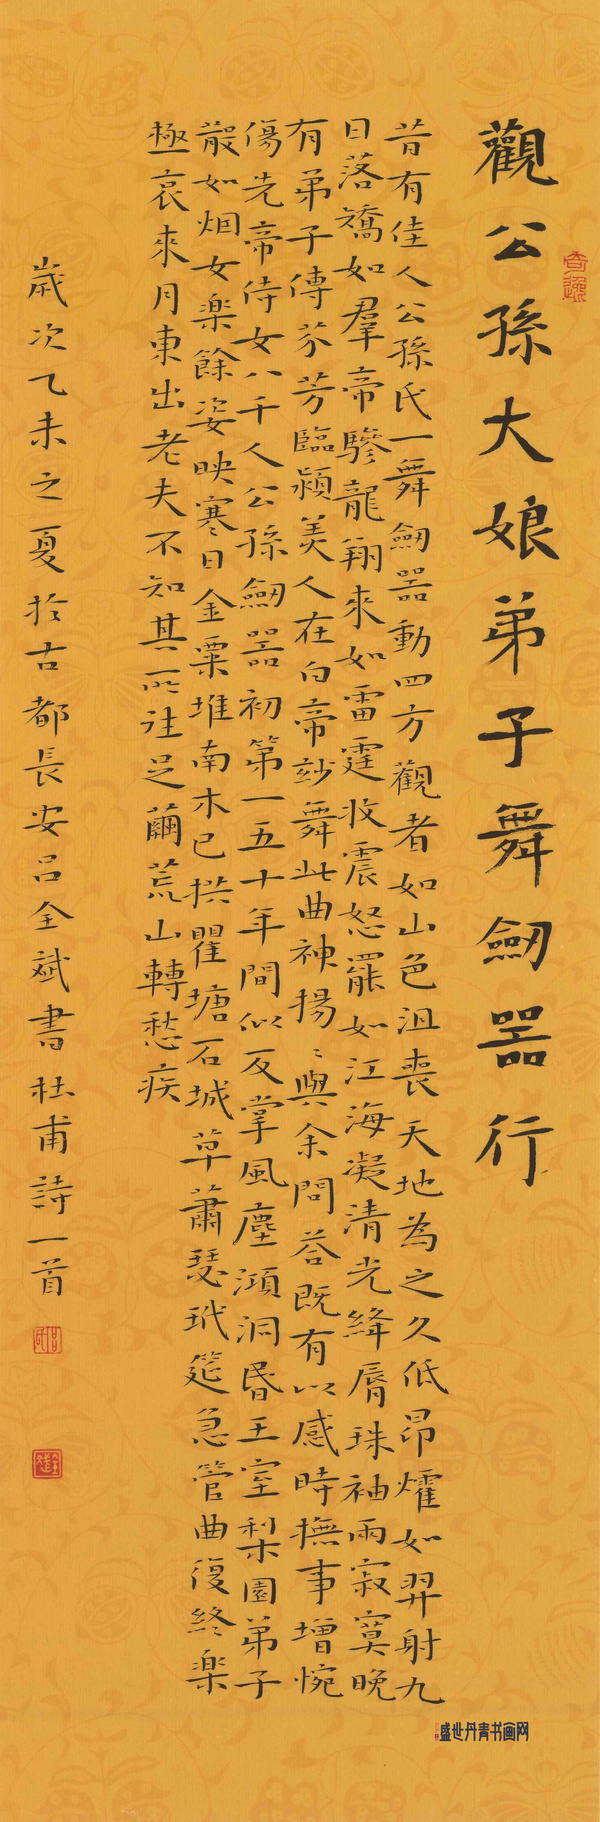 觀公孫大娘弟子舞劒器行
昔有佳人公孫氏一舞劒器動四方觀者如山色沮喪天地為之久低昂燿如羿射九
日落矯如羣帝驂龍翔來如雷霆收震怒罷如江海凝清光絳脣珠袖兩寂寞晚
有弟子傳芬芳臨潁美人在白帝玅舞此曲神揚〻與余問荅既有以感時撫事增惋
傷先帝侍女八千人公孫劒器初第一五十年間似反掌風塵澒洞昬王室梨園弟子
散如烟女楽餘姿映寒日金粟堆南木已拱瞿塘石城草蕭瑟玳筵急管曲復終楽
極哀來月東出老夫不知其所往足繭荒山轉愁疾
歲次乙未之夏於古都長安呂全斌書杜甫詩一首
盛世丹青书画网